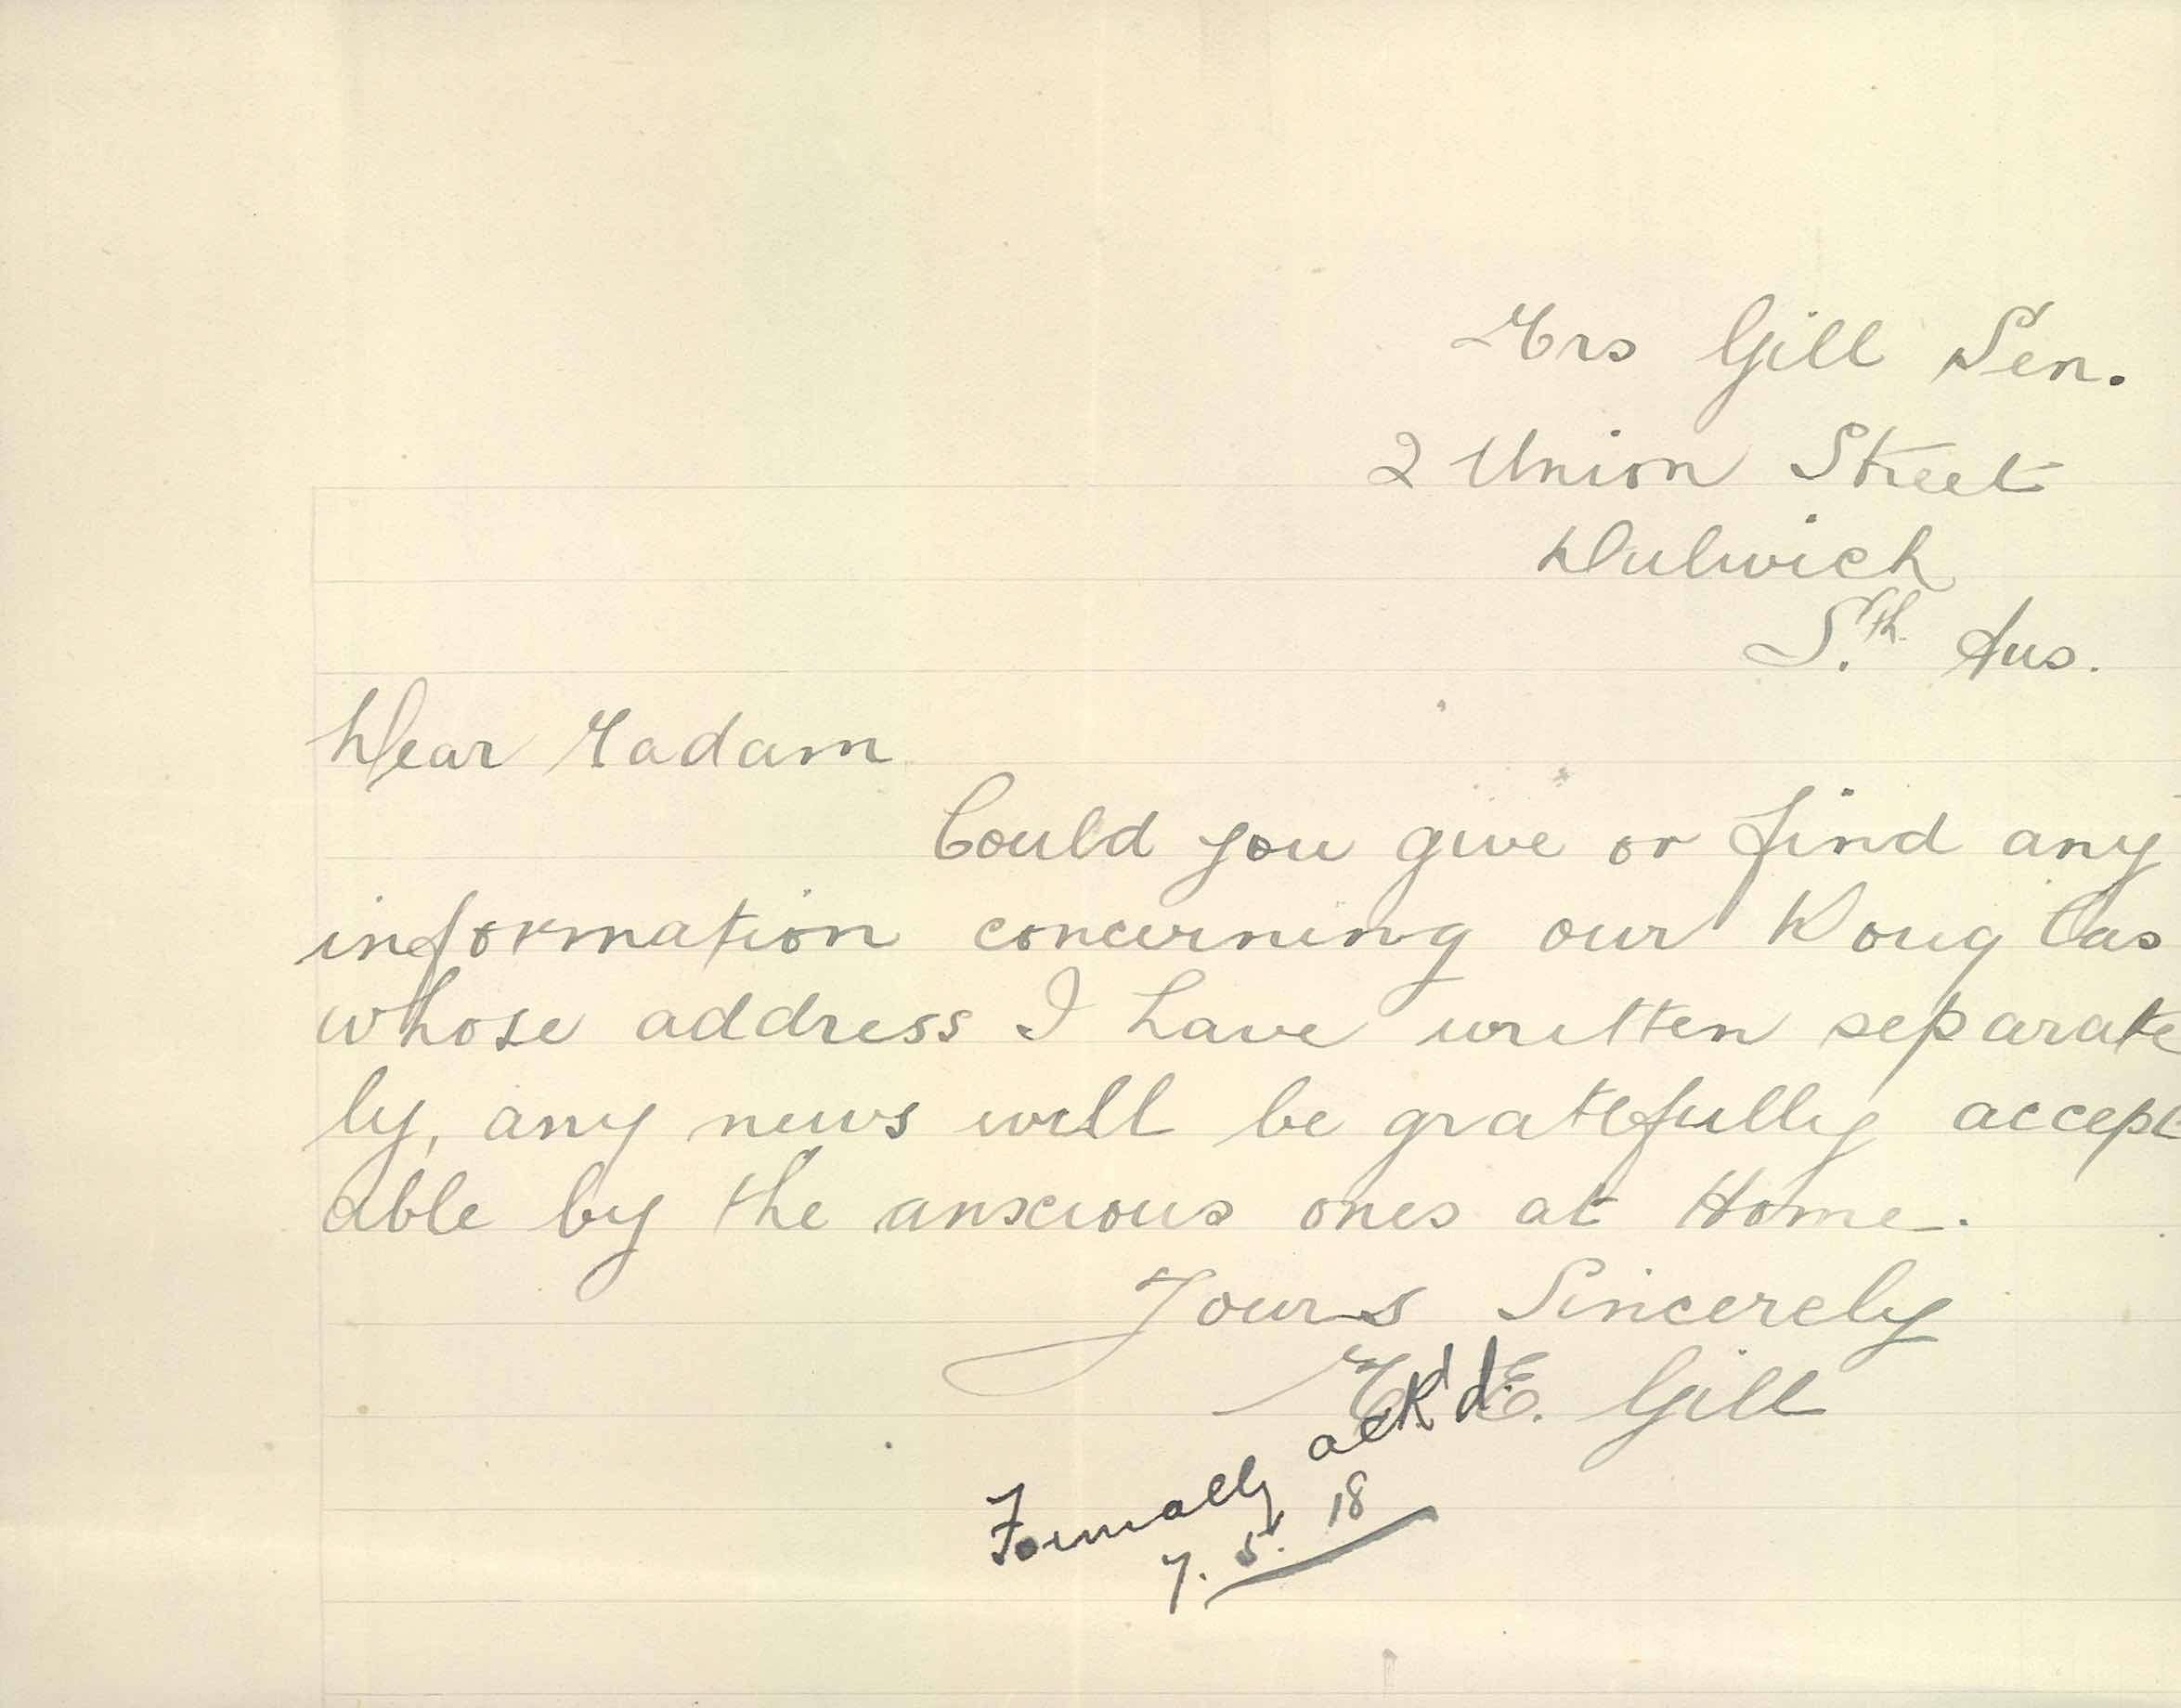 Mrs Gill Sen.
2 Union Street
Dulwich
Sth. Aus.
Dear Madam
Could you give or find any
information concerning our Douglas
whose address I have written separate
ly, any news will be gratefully accept
able by the anscious ones at Home.
Yours Sincerely
M E. Gill
Formally ackd d.
7. 5. 18